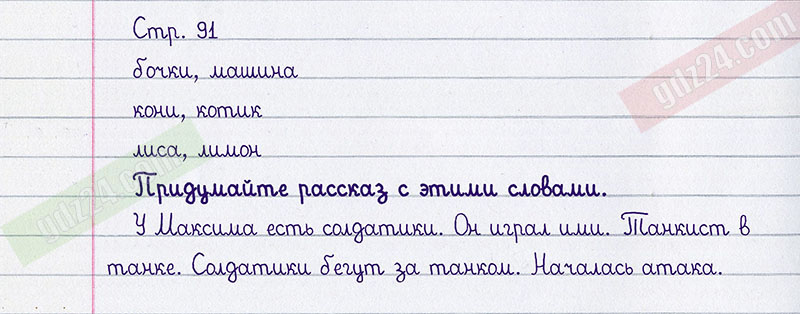 Стр. 91
бочки, машина
кони, котик
лиса, лимон
Придумайте рассказ с этими словами.
У Максима есть солдатики. Он играл ими. Танкист в
танке. Солдатики бегут за танком. Началась атака.
gdz24.com
gdz24.com